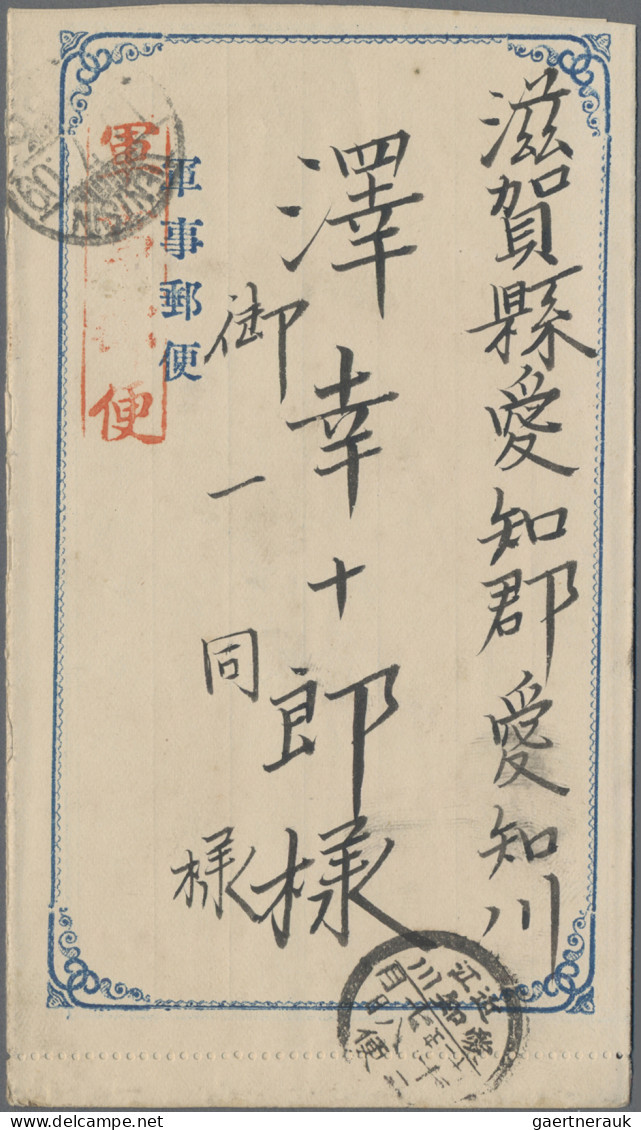 滋賀縣愛知郡愛知川
澤幸十郎様
御一同様
軍事郵便
軍 便
近江
愛知川
gaertnerauk
www.delcampe.net